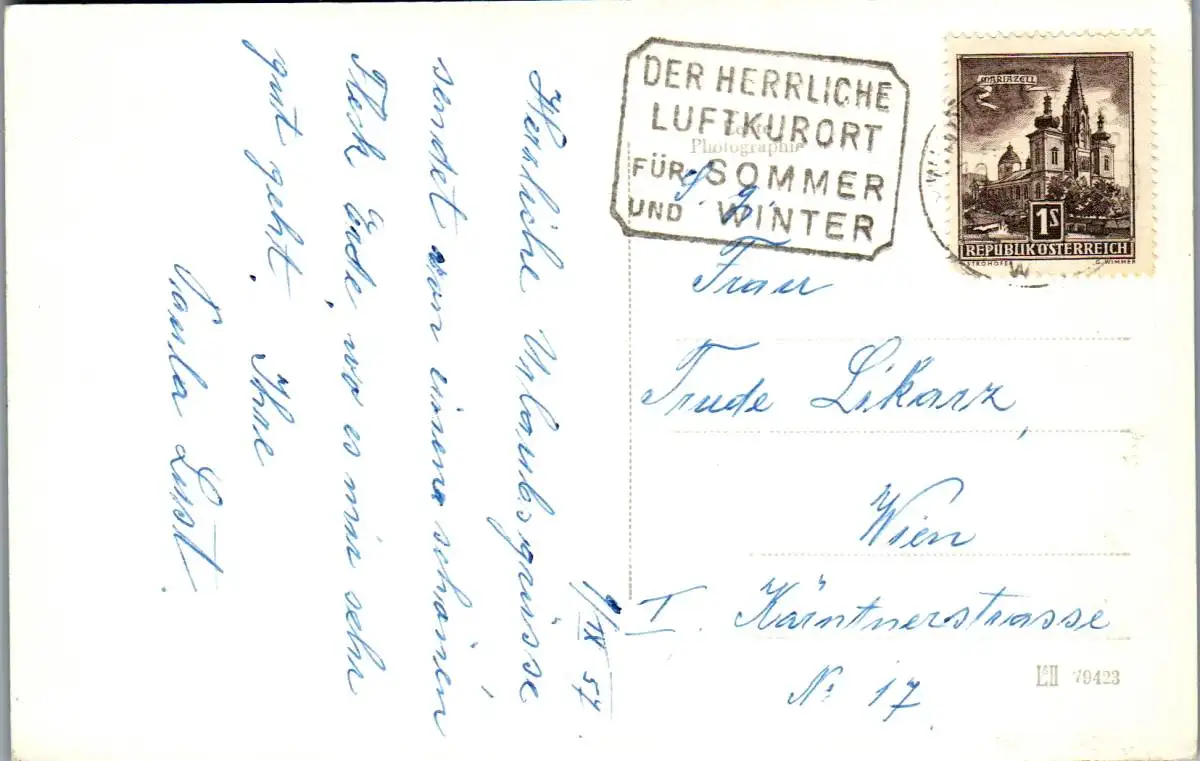 9/IX 57
Herzliche Urlaubsgrüsse
sendet von einem schönen
Fleck Erde, wo es mir sehr
gut geht. Ihre
Paula Lust.
DER HERRLICHE
LUFTKURORT
FÜR SOMMER
UND WINTER
Echte
Photographie
MARIAZELL
1S
REPUBLIK ÖSTERREICH
STROHOFER G. WIMMER
S. g.
Frau
Trude Likarz,
Wien
I. Kärntnerstrasse
No 17.
79423